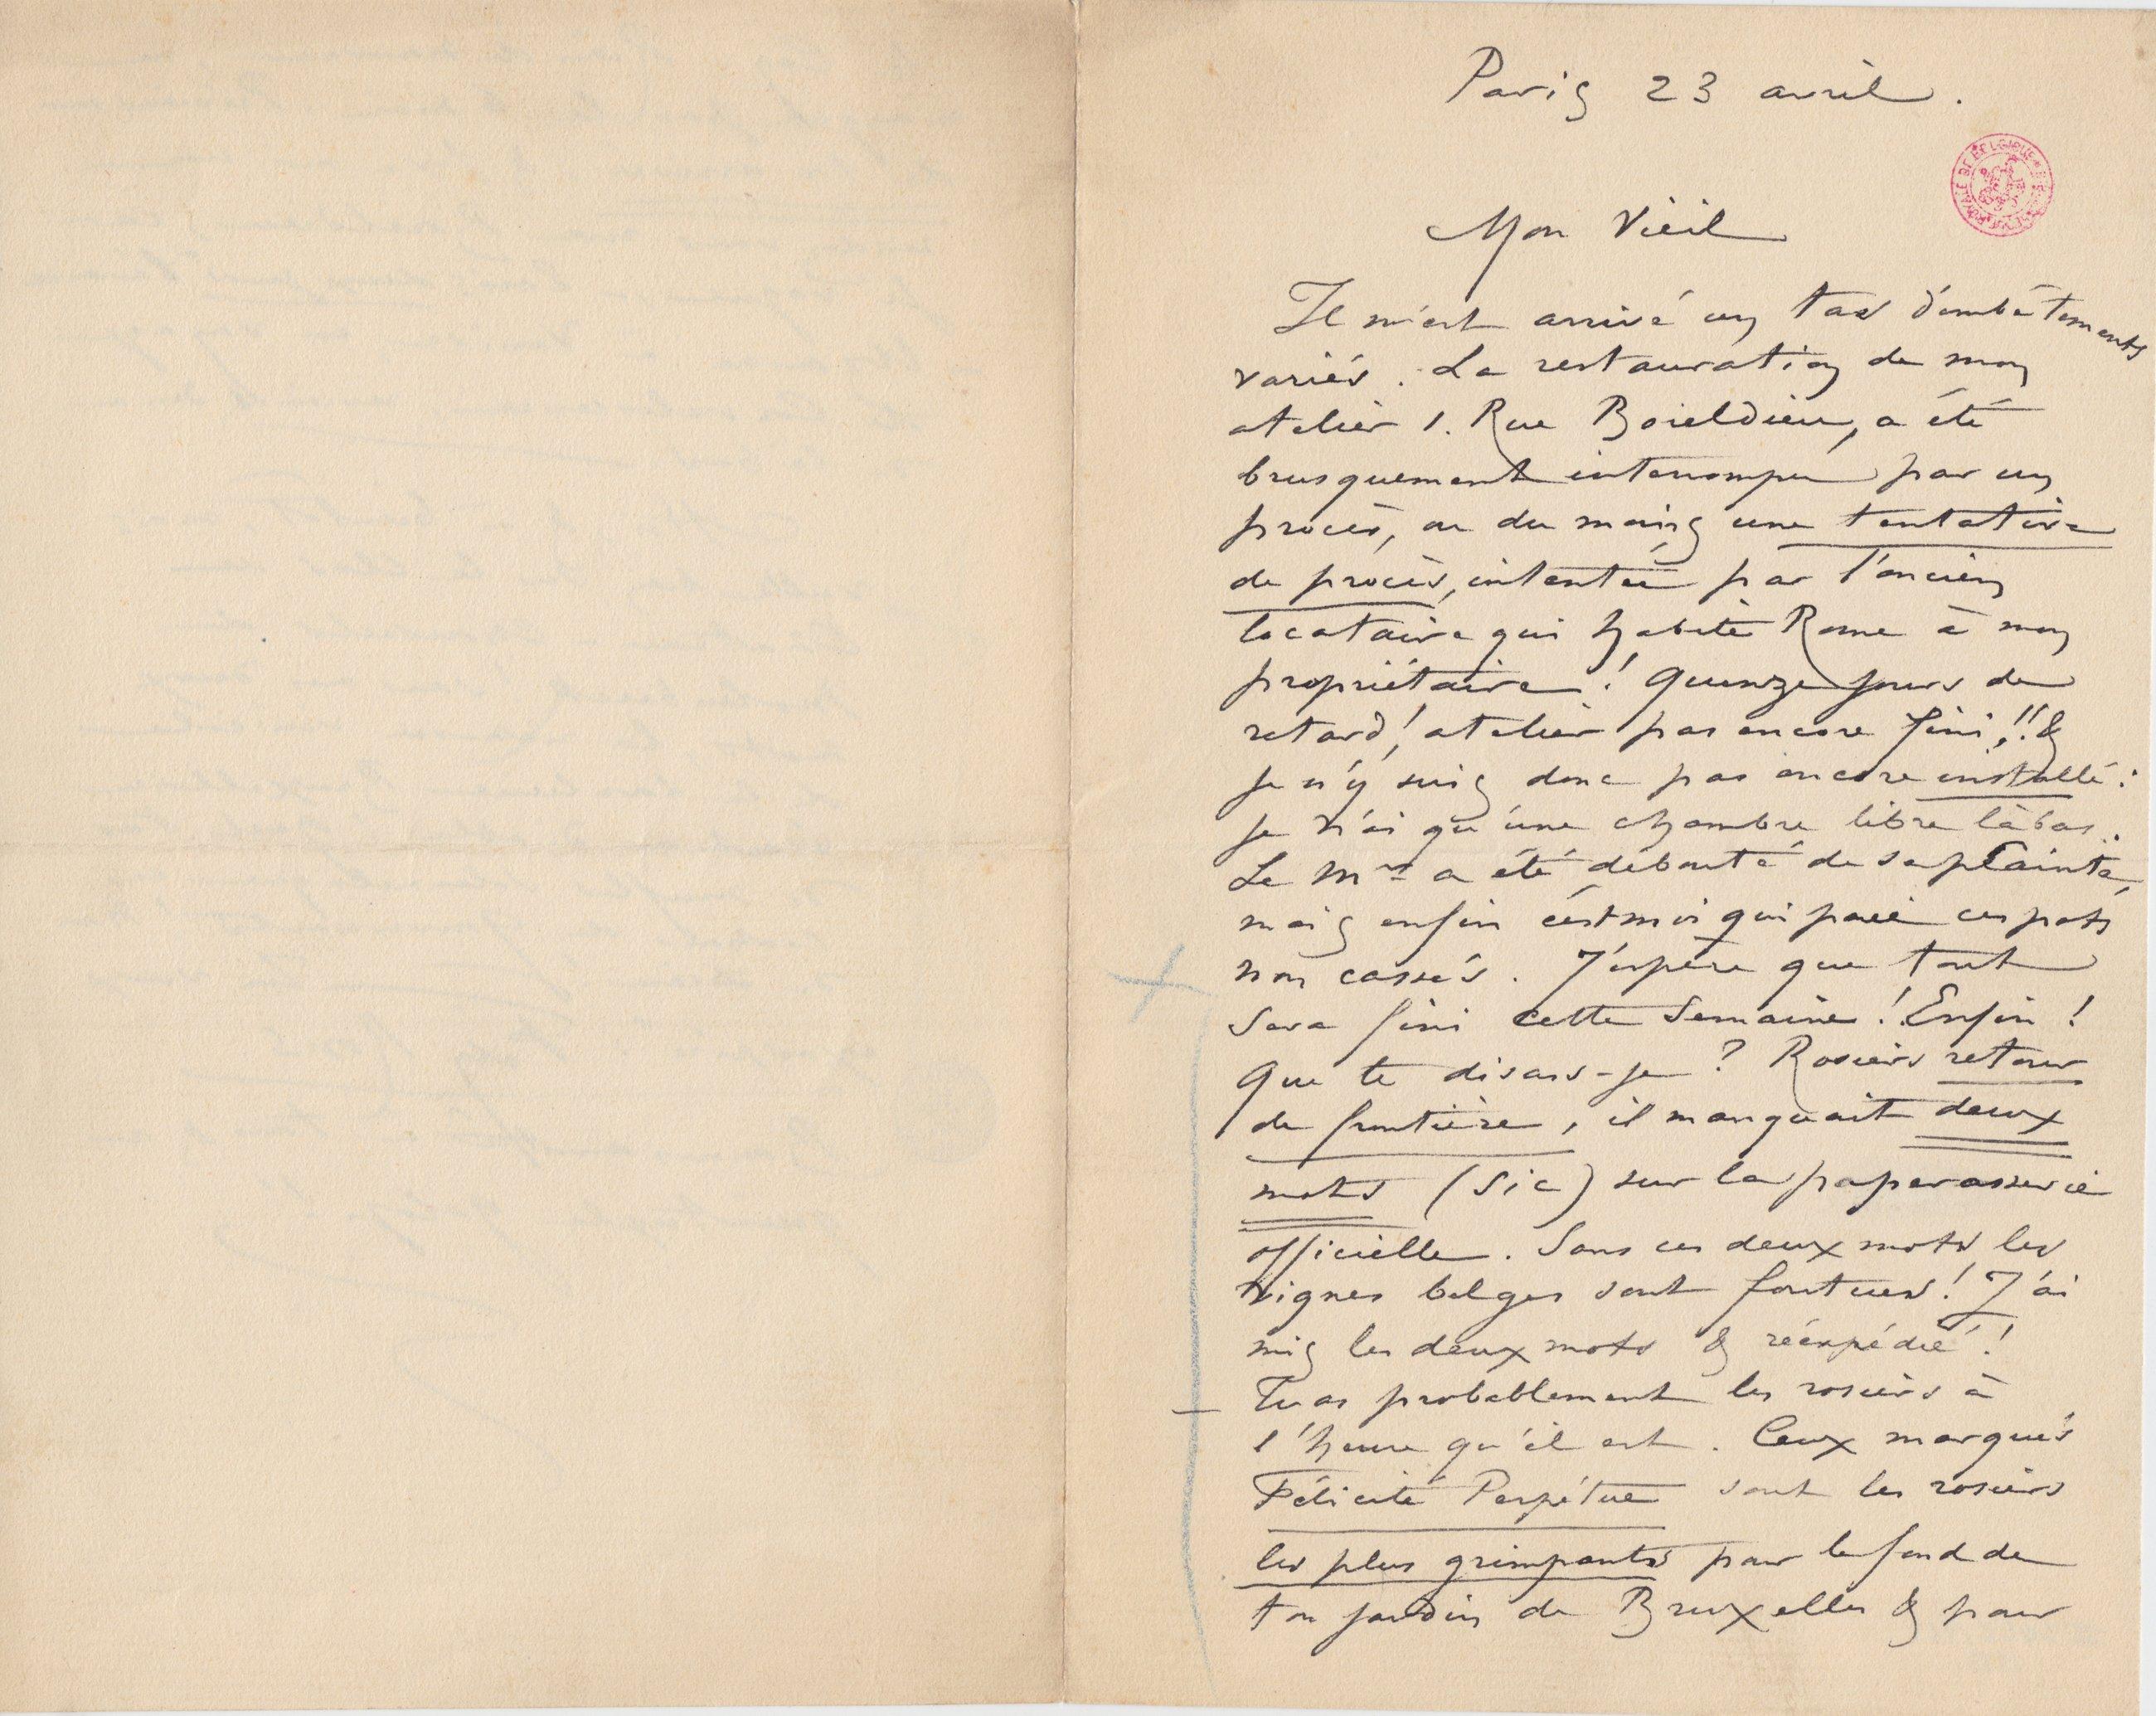 Paris 23 avril.
Mon Vieil
Il m'est arrivé un tas d'embêtements
variés. La restauration de mon
atelier 1. Rue Boieldieu, a été
brusquement interrompu par un
procès, ou du moins une tentative
de procès, intentée par l'ancien
locataire qui habite Rome à mon
propriétaire! Quinze jours de
retard! atelier pas encore fini!! &
je n'y suis donc pas encore installé:
je n'ai qu'une chambre libre làbas.
Le Mr a été débouté de sa plainte,
mais enfin c'est moi qui paie ces pots
non cassés. J'espère que tout
sera fini cette semaine! Enfin!
Que te disais-je? Rosiers retour
de frontière, il manquait deux
mots (sic) sur la paperasserie
officielle. Sans ces deux mots les
vignes belges sont foutues! J'ai
mis les deux mots & réexpédié!
Tu as probablement les rosiers à
l'heure qu'il est. Ceux marqués
Félicité Perpétue sont les rosiers
les plus grimpants pour le fond de
ton jardin de Bruxelles & pour